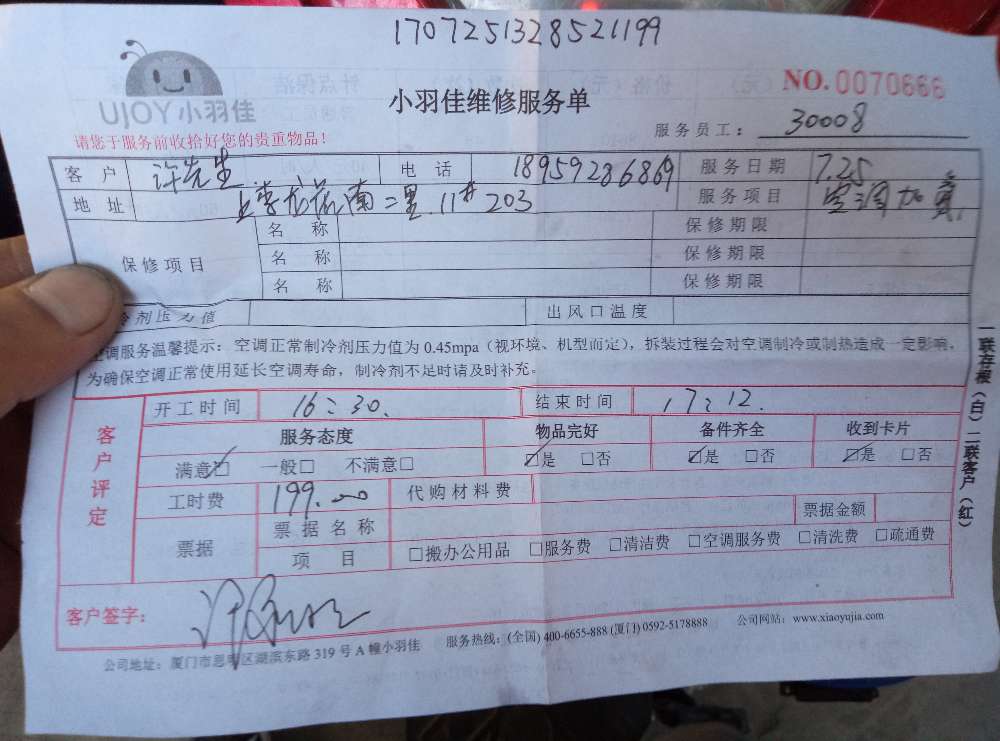 1707251328521199
UJOY小羽佳
小羽佳维修服务单
NO.0070666
请您于服务前收拾好您的贵重物品！
服务员工： 30008
客 户 许先生 电 话 18959286869 服务日期 7.25
地 址 南二里11# 203 服务项目 空调加氟
保修项目 名 称 保修期限
名 称 保修期限
名 称 保修期限
冷剂压力值 出风口温度
空调服务温馨提示：空调正常制冷剂压力值为0.45mpa（视环境、机型而定），拆装过程会对空调制冷或制热造成一定影响，
为确保空调正常使用延长空调寿命，制冷剂不足时请及时补充。
客户评定 开工时间 16:30. 结束时间 17:12.
服务态度 物品完好 备件齐全 收到卡片
满意☑ 一般□ 不满意□ ☑是 □否 ☑是 □否 ☑是 □否
工时费 199.00 代购材料费
票据 票据名称 票据金额
项 目 □搬办公用品 □服务费 □清洁费 □空调服务费 □清洗费 □疏通费
客户签字：
公司地址：厦门市思明区湖滨东路319号A幢小羽佳 服务热线：(全国) 400-6655-888 (厦门) 0592-5178888 公司网站：www.xiaoyujia.com
一联存根（白）二联客户（红）